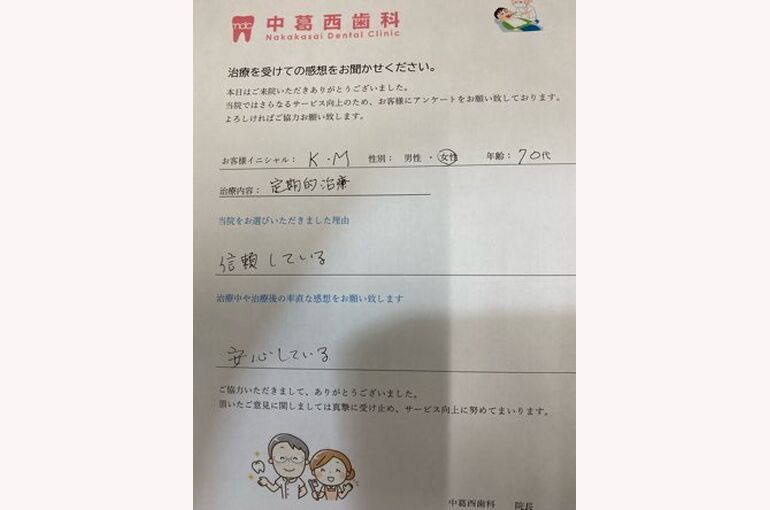 ndc 中葛西歯科
Nakakasai Dental Clinic
治療を受けての感想をお聞かせください。
本日はご来院いただきありがとうございました。
当院ではさらなるサービス向上のため、お客様にアンケートをお願い致しております。
よろしければご協力お願い致します。
お客様イニシャル： K・M 性別： 男性 ・ 女性 年齢： 70代
治療内容： 定期的治療
当院をお選びいただきました理由
信頼している
治療中や治療後の率直な感想をお願い致します
安心している
ご協力いただきまして、ありがとうございました。
頂いたご意見に関しましては真摯に受け止め、サービス向上に努めてまいります。
中葛西歯科 院長